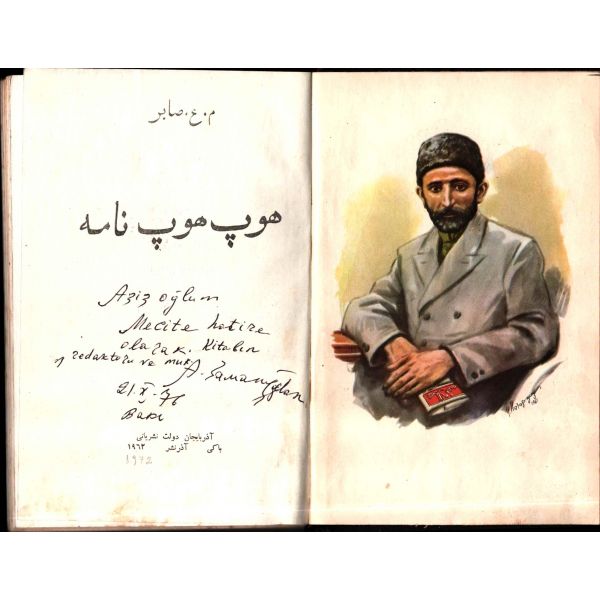 م. ع. صابر
هوپ هوپ نامه
Aziz oğlum
Mecite hatire
olarak. Kitabın
redaktoru ve
A. Zamanoğlan
21.X.76
Bakı
آذربایجان دولت نشریاتی
باکی آذرنشر ۱۹۶۲